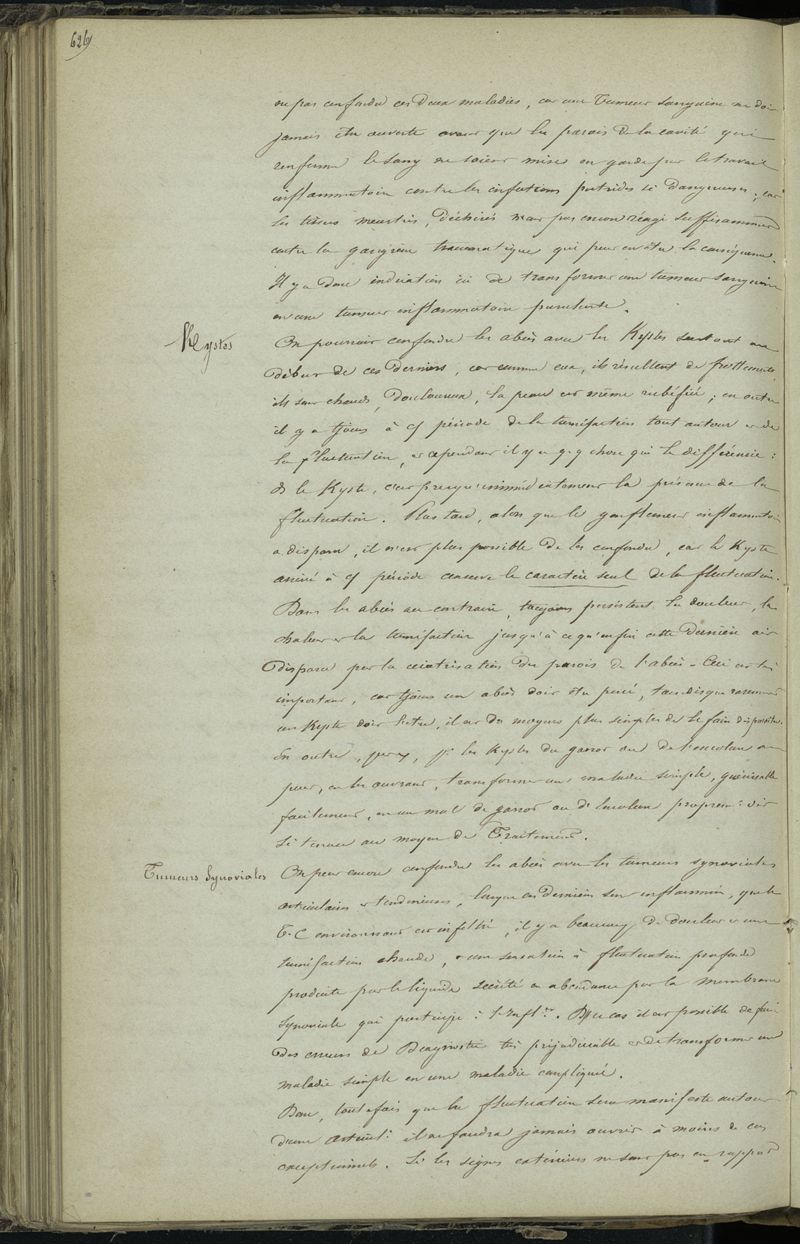 626
ne pas confondre ces deux maladies, car une Tumeur sanguine ne doi
jamais être ouverte avant que les parois de la cavité qui
renferme le sang ne soient mises en garde par le travail
inflammatoire contre les infections putrides si dangereuses ; car
les tissus meurtris, déchirés n'ont pas encore réagi suffisamment
contre la gangrène traumatique qui peut en être la conséquence.
Il y a donc indication ici de transformer une tumeur sanguine
en une tumeur inflammatoire purulente.
Kystes
On pourrait confondre les abcès avec les Kystes surtout au
début de ces derniers, car comme eux, ils résultent de frottements
ils sont chauds, douloureux, la peau est même rubéfiée ; en outre
il y a tjours à cf période de la tuméfaction tout autour et de
la fluctuation, et cependant il y a q.q chose qui le différencie :
ds le Kyste, c'est presqu'immédiatement la présence de la
fluctuation. Plus tard, alors que le gonflement inflammatoir
a disparu, il n'est plus possible de les confondre, car le Kyste
arrivé à cf période conserve le caractère seul de la fluctuation.
Dans les abcès au contraire, toujours persistent la douleur, la
chaleur et la tuméfaction jusqu'à ce qu'enfin cette dernière ait
disparu par la cicatrisation des parois de l'abcès - Ceci est très
important, car tjours un abcès doit être percé, tandis que rarement
un Kyste doit l'être, il est des moyens plus simples de le faire disparaître.
En outre, pr les Kystes du garrot ou de l'encolure on
peut, en les ouvrant, transformer une maladie simple, guérissable
facilement, en un mal de garrot ou d'encolure proprem: dit
si tenace au moyen de Traitement.
Tumeurs Synoviales
On peut encore confondre les abcès avec les tumeurs synoviales
articulaires et tendineuses, lorsque ces dernières sont enflammées, que le
T.C environnant est infiltré, il y a beaucoup de douleur et une
tuméfaction chaude, et une sensation de fluctuation profonde
produite par le liquide sécrété en abondance par la membrane
synoviale qui participe à l'Inflon. Ds ce cas il est possible de fair
des erreurs de Diagnostic très préjudiciable et de transformer une
maladie simple en une maladie compliquée.
Donc, toutefois que la fluctuation sera manifeste autour
d'une articulon il ne faudra jamais ouvrir à moins de cas
exceptionnels. Si les signes extérieurs ne sont pas en rapport